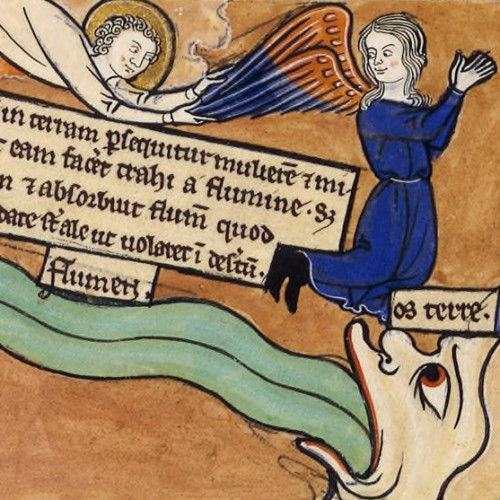 in terram ꝑsequitur mulierē ⁊ mi-
eam facēt trahi a flumine · Sꝫ
⁊ absorbuit flum̄ quod
date st̄ ale ut uolaret ī des̄tū.
flumen.
os terre.